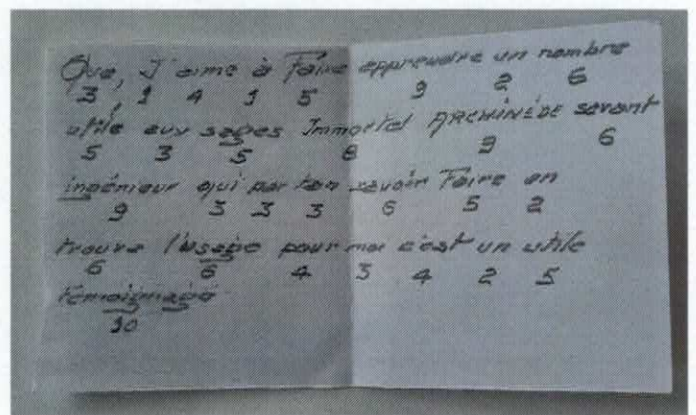 Que, J'aime à Faire apprendre un nombre
3, 1 4 1 5 9 2 6
utile aux sages Immortel ARCHIMÈDE savant
5 3 5 8 9 6
ingénieur qui par ton savoir Faire en
9 3 3 3 6 5 2
trouva l'usage pour moi c'est un utile
6 6 4 3 4 2 5
témoignage
10